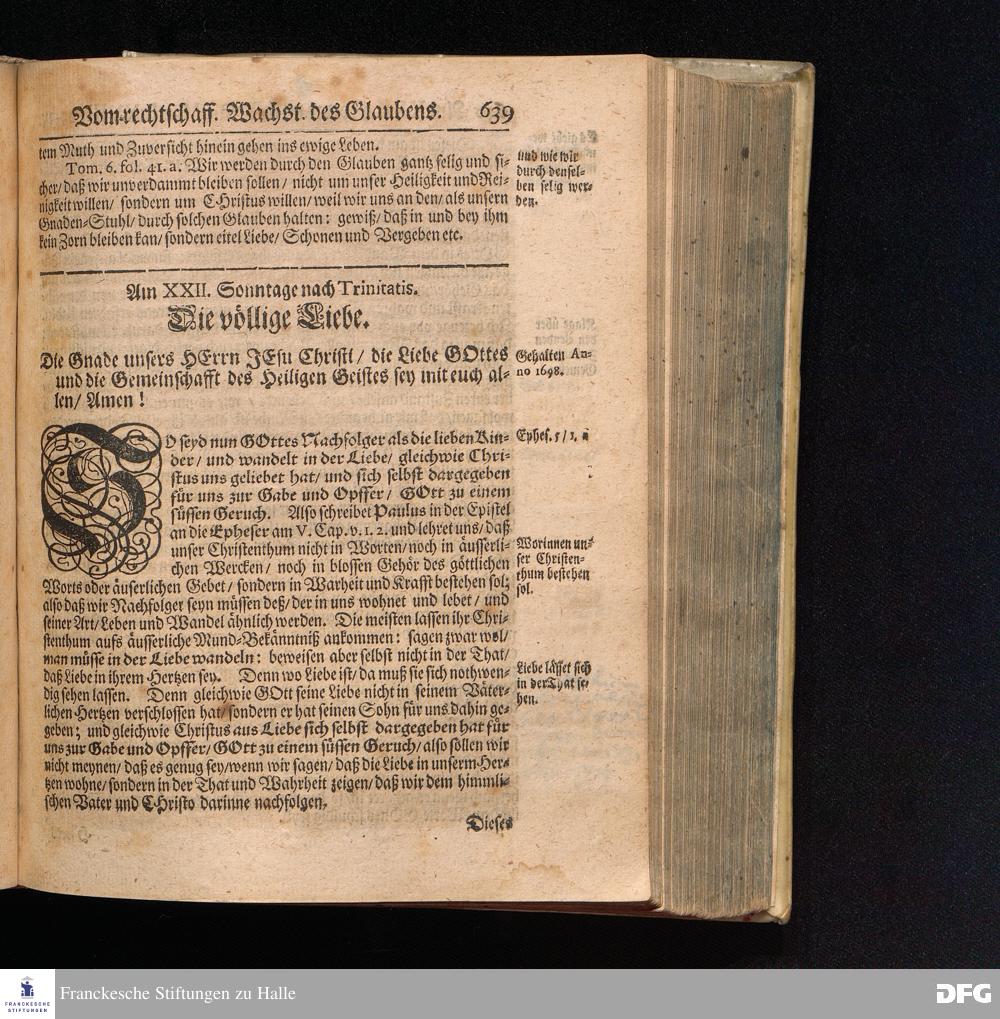 Vom rechtschaff. Wachst. des Glaubens. 639
tem Muth und Zuversicht hinein gehen ins ewige Leben.
Tom. 6. fol. 41. a. Wir werden durch den Glauben gantz selig und si-
cher/ daß wir unverdammt bleiben sollen/ nicht um unser Heiligkeit und Rei-
nigkeit willen/ sondern um CHristus willen/ weil wir uns an den/ als unsern
Gnaden-Stuhl/ durch solchen Glauben halten: gewiß/ daß in und bey ihm
kein Zorn bleiben kan/ sondern eitel Liebe/ Schonen und Vergeben etc.
und wie wir
durch densel-
ben selig wer-
den.
Am XXII. Sonntage nach Trinitatis.
Die völlige Liebe.
Die Gnade unsers HErrn JEsu Christi/ die Liebe GOttes
und die Gemeinschafft des Heiligen Geistes sey mit euch al-
len/ Amen!
Gehalten An-
no 1698.
SO seyd nun GOttes Nachfolger als die lieben Kin-
der/ und wandelt in der Liebe/ gleichwie Chri-
stus uns geliebet hat/ und sich selbst dargegeben
für uns zur Gabe und Opffer/ GOtt zu einem
süssen Geruch. Also schreibet Paulus in der Epistel
an die Epheser am V. Cap. v. 1. 2. und lehret uns/ daß
unser Christenthum nicht in Worten/ noch in äusserli-
chen Wercken/ noch in blossen Gehör des göttlichen
Worts oder äuserlichen Gebet/ sondern in Warheit und Krafft bestehen sol;
also daß wir Nachfolger seyn müssen deß/ der in uns wohnet und lebet/ und
seiner Art/ Leben und Wandel ähnlich werden. Die meisten lassen ihr Chri-
stenthum aufs äusserliche Mund-Bekänntniß ankommen: sagen zwar wol/
man müsse in der Liebe wandeln: beweisen aber selbst nicht in der That/
daß Liebe in ihrem Hertzen sey. Denn wo Liebe ist/ da muß sie sich nothwen-
dig sehen lassen. Denn gleichwie GOtt seine Liebe nicht in seinem Väter-
lichen Hertzen verschlossen hat/ sondern er hat seinen Sohn für uns dahin ge-
geben; und gleichwie Christus aus Liebe sich selbst dargegeben hat für
uns zur Gabe und Opffer/ GOtt zu einem süssen Geruch/ also sollen wir
nicht meynen/ daß es genug sey/ wenn wir sagen/ daß die Liebe in unserm Her-
tzen wohne/ sondern in der That und Wahrheit zeigen/ daß wir dem himmli-
schen Vater und CHristo darinne nachfolgen.
Ephes. 5/ 1.
Worinnen un-
ser Christen-
thum bestehen
sol.
Liebe lässet sich
in der That se-
hen.
Dieses
FRANCKESCHE
STIFTUNGEN
Franckesche Stiftungen zu Halle
DFG